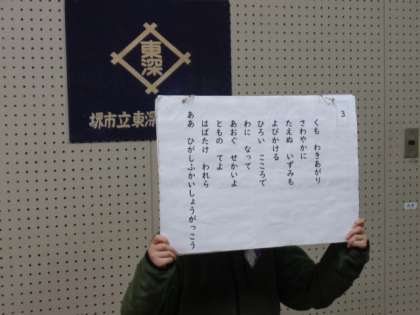 東深
堺市立東深
3
くも わきあがり
さわやかに
たえぬ いずみも
よびかける
ひろい こころで
わに なって
あおぐ せかいよ
ともの てよ
はばたけ われら
ああ ひがしふかいしょうがっこう